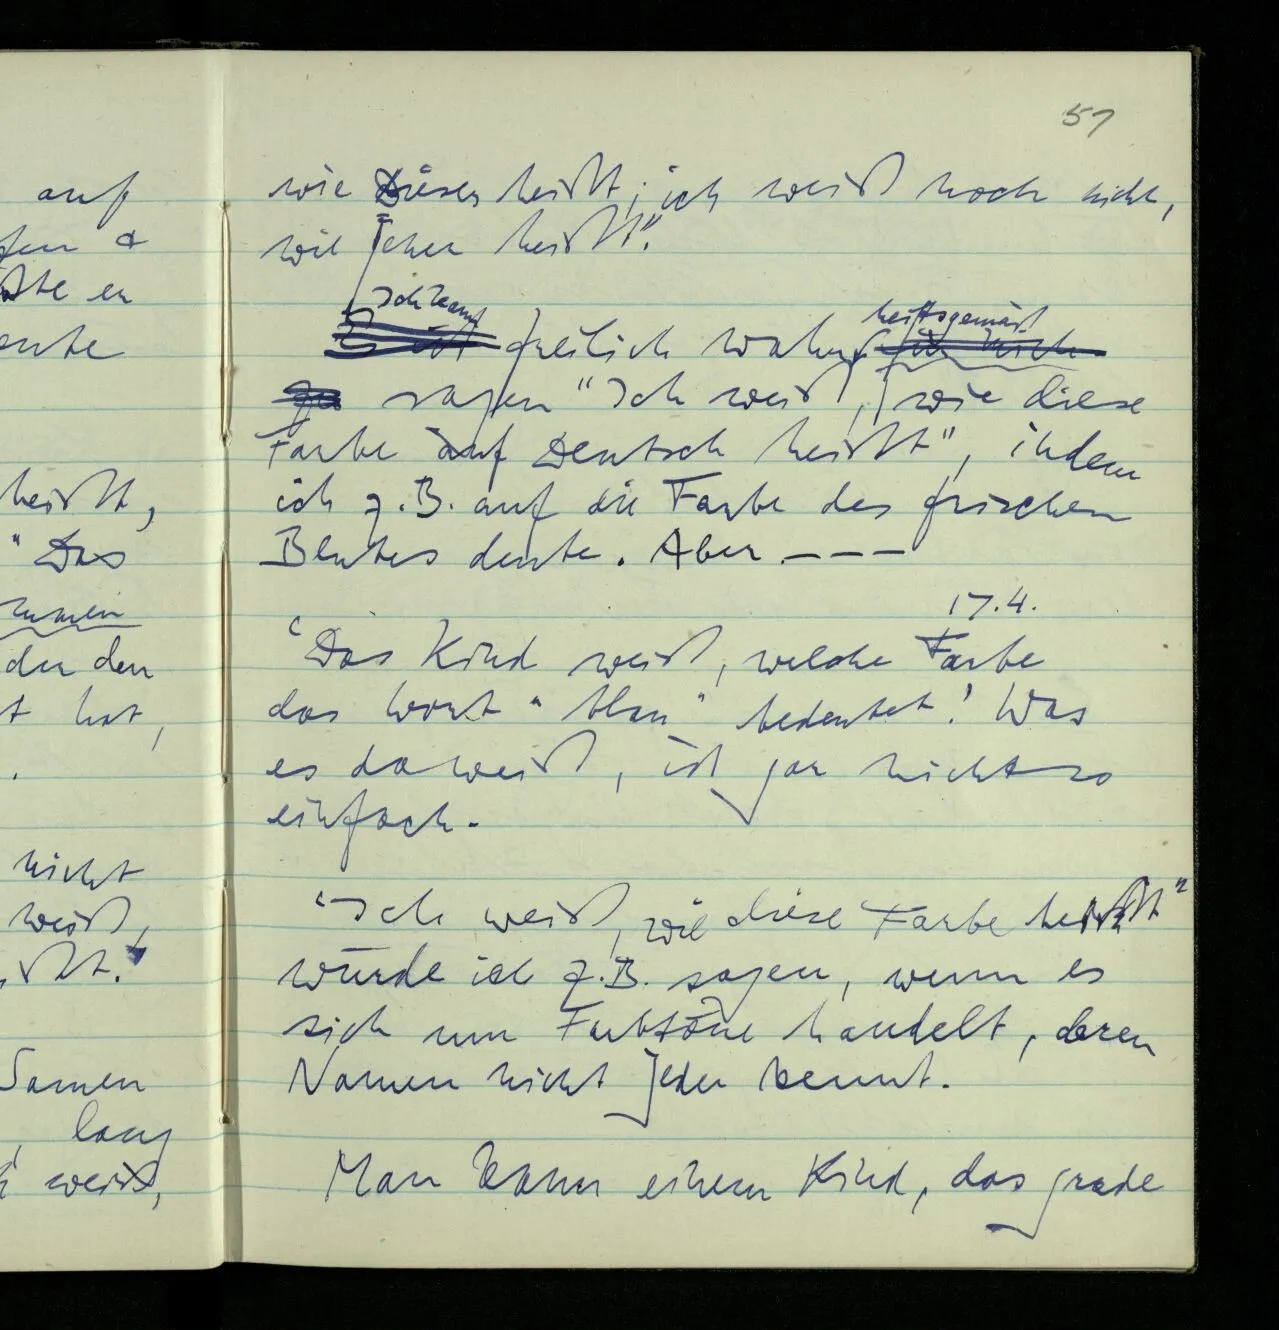 51
auf
wie dieser heißt; ich weiß noch nicht,
wie jener heißt".
Ich kann
Es ist freilich wahrheitsgemäß für mich
zu sagen "Ich weiß, wie diese
Farbe auf Deutsch heißt", indem
ich z.B. auf die Farbe des frischen
Blutes deute. Aber – – –
17.4.
'Das Kind weiß, welche Farbe
das Wort "blau" bedeutet.' Was
es da weiß, ist gar nicht so
einfach.
"Ich weiß, wie diese Farbe heißt"
würde ich z.B. sagen, wenn es
sich um Farbtöne handelt, deren
Namen nicht jeder kennt.
Man kann einem Kind, das grade
heißt,
"Das
der den
t hat,
nicht
weiß,
Samen
lang
weiß,